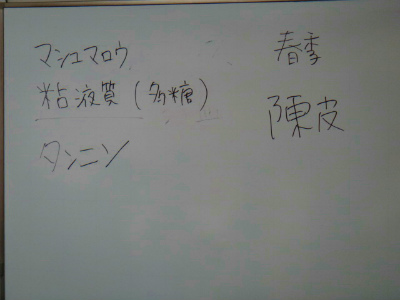 マシュマロウ
粘液質(多糖)
タンニン
春季
陳皮